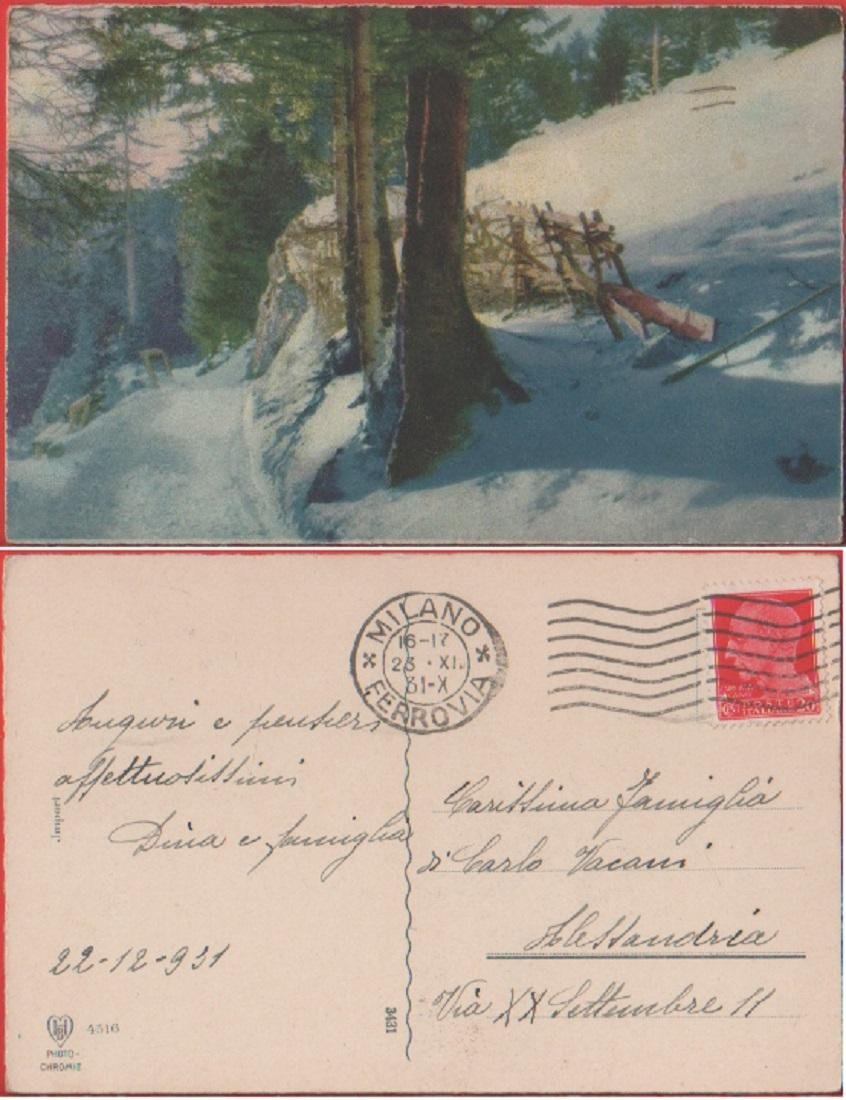 MILANO
16-17
23 · XI.
31-X
FERROVIA
Auguri e pensieri
affettuosissimi
Dina e famiglia
22-12-931
Import
4516
PHOTO-
CHROMIE
3431
Carissima Famiglia
di Carlo Vacani
Alessandria
Via XX Settembre 11